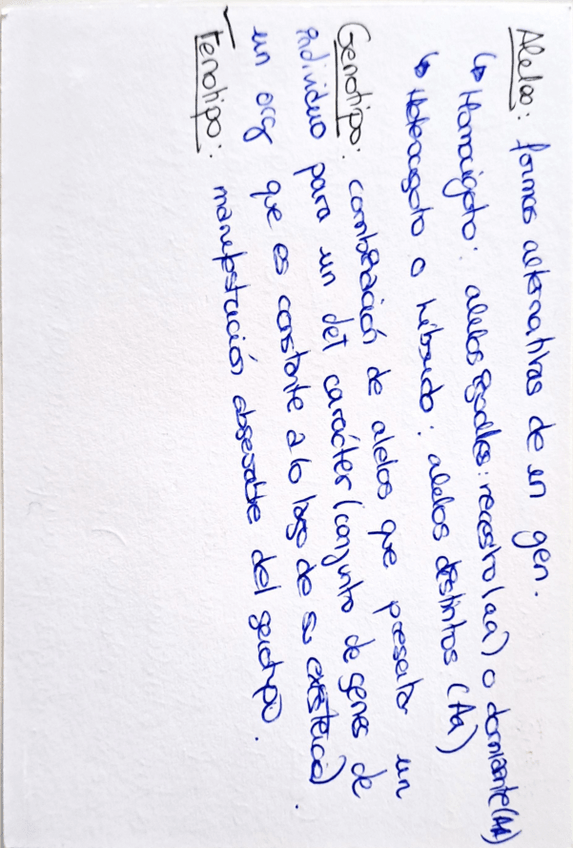 Alelos: formas alternativas de un gen.
↳ Homocigoto: alelos iguales: recesivo (aa) o dominante (AA)
↳ Heterocigoto o híbrido: alelos distintos (Aa)
Genotipo: combinación de alelos que presenta un
individuo para un det carácter (conjunto de genes de
un org que es constante a lo largo de su existencia).
Fenotipo: manifestación observable del genotipo.